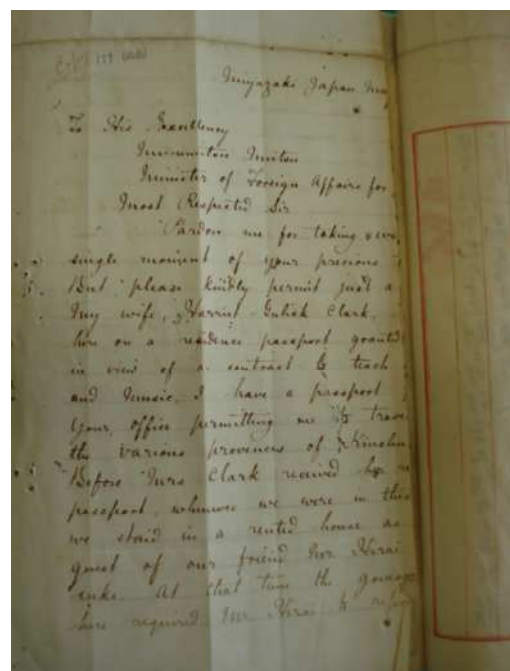 Miyazaki Japan
To His Excellency
Minister of Foreign Affairs for
Most Respected Sir
Pardon me for taking
single moment of your precious
But please kindly permit just a
My wife, Harriet Gulick Clark,
on a residence passport granted
in view of a contract to teach
and music, I have a passport
your office permitting me to trave
the various provences of Kiushiu
Before Mrs Clark received her
passport, whenever we were in this
we staid in a rented house as
guest of our friend Mr Hirai
At that time the
here required Mr Hirai to